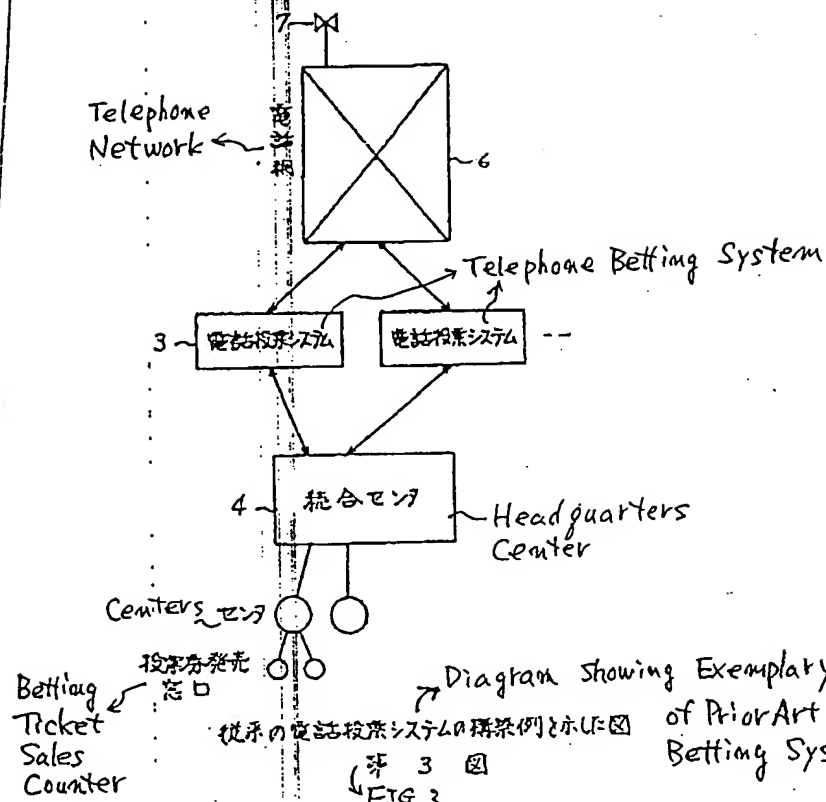 7
Telephone
Network
電話網
6
Telephone Betting System
3
電話投票システム
電話投票システム
--
4
統合センタ
Headquarters
Center
Centers
センタ
投票券発売
窓口
Betting
Ticket
Sales
Counter
Diagram Showing Exemplary
of Prior Art
Betting Sys
従来の電話投票システムの構築例を示した図
第 3 図
FIG 3